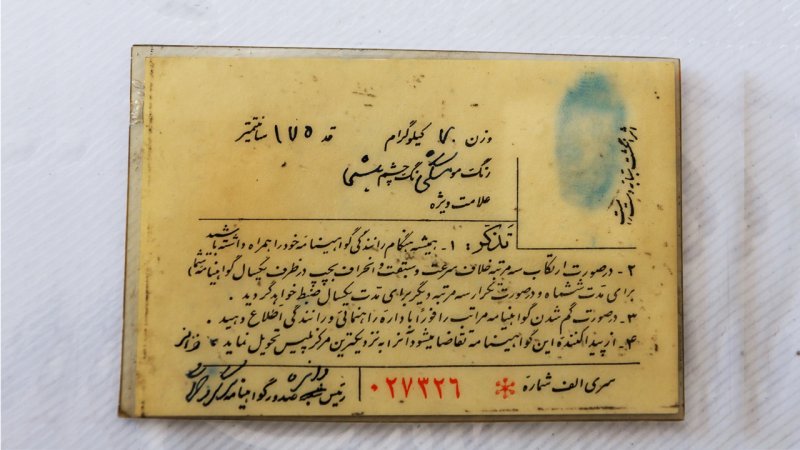 وزن ۷۰ کیلوگرام قد ۱۷۵ سانتیمتر
رنگ مو مشکی رنگ چشم میشی
علامت ویژه
اثر انگشت سبابه دست راست
تذکر: ۱- همیشه هنگام رانندگی گواهینامه خود را همراه داشته باشید
۲- در صورت ارتکاب سه مرتبه خلاف سرعت و سبقت و انحراف بچپ در ظرف یکسال گواهینامه شما
برای مدت ششماه و در صورت تکرار سه مرتبه دیگر برای مدت یکسال ضبط خواهد گردید .
۳- در صورت گم شدن گواهینامه مراتب را فوراً باداره راهنمائی و رانندگی اطلاع دهید .
۴- از پیدا کننده این گواهینامه تقاضا میشود آنرا به نزدیکترین مرکز پلیس تحویل نماید
سری الف شماره * ۰۲۷۳۲۶
رئیس دایره صدور گواهینامه